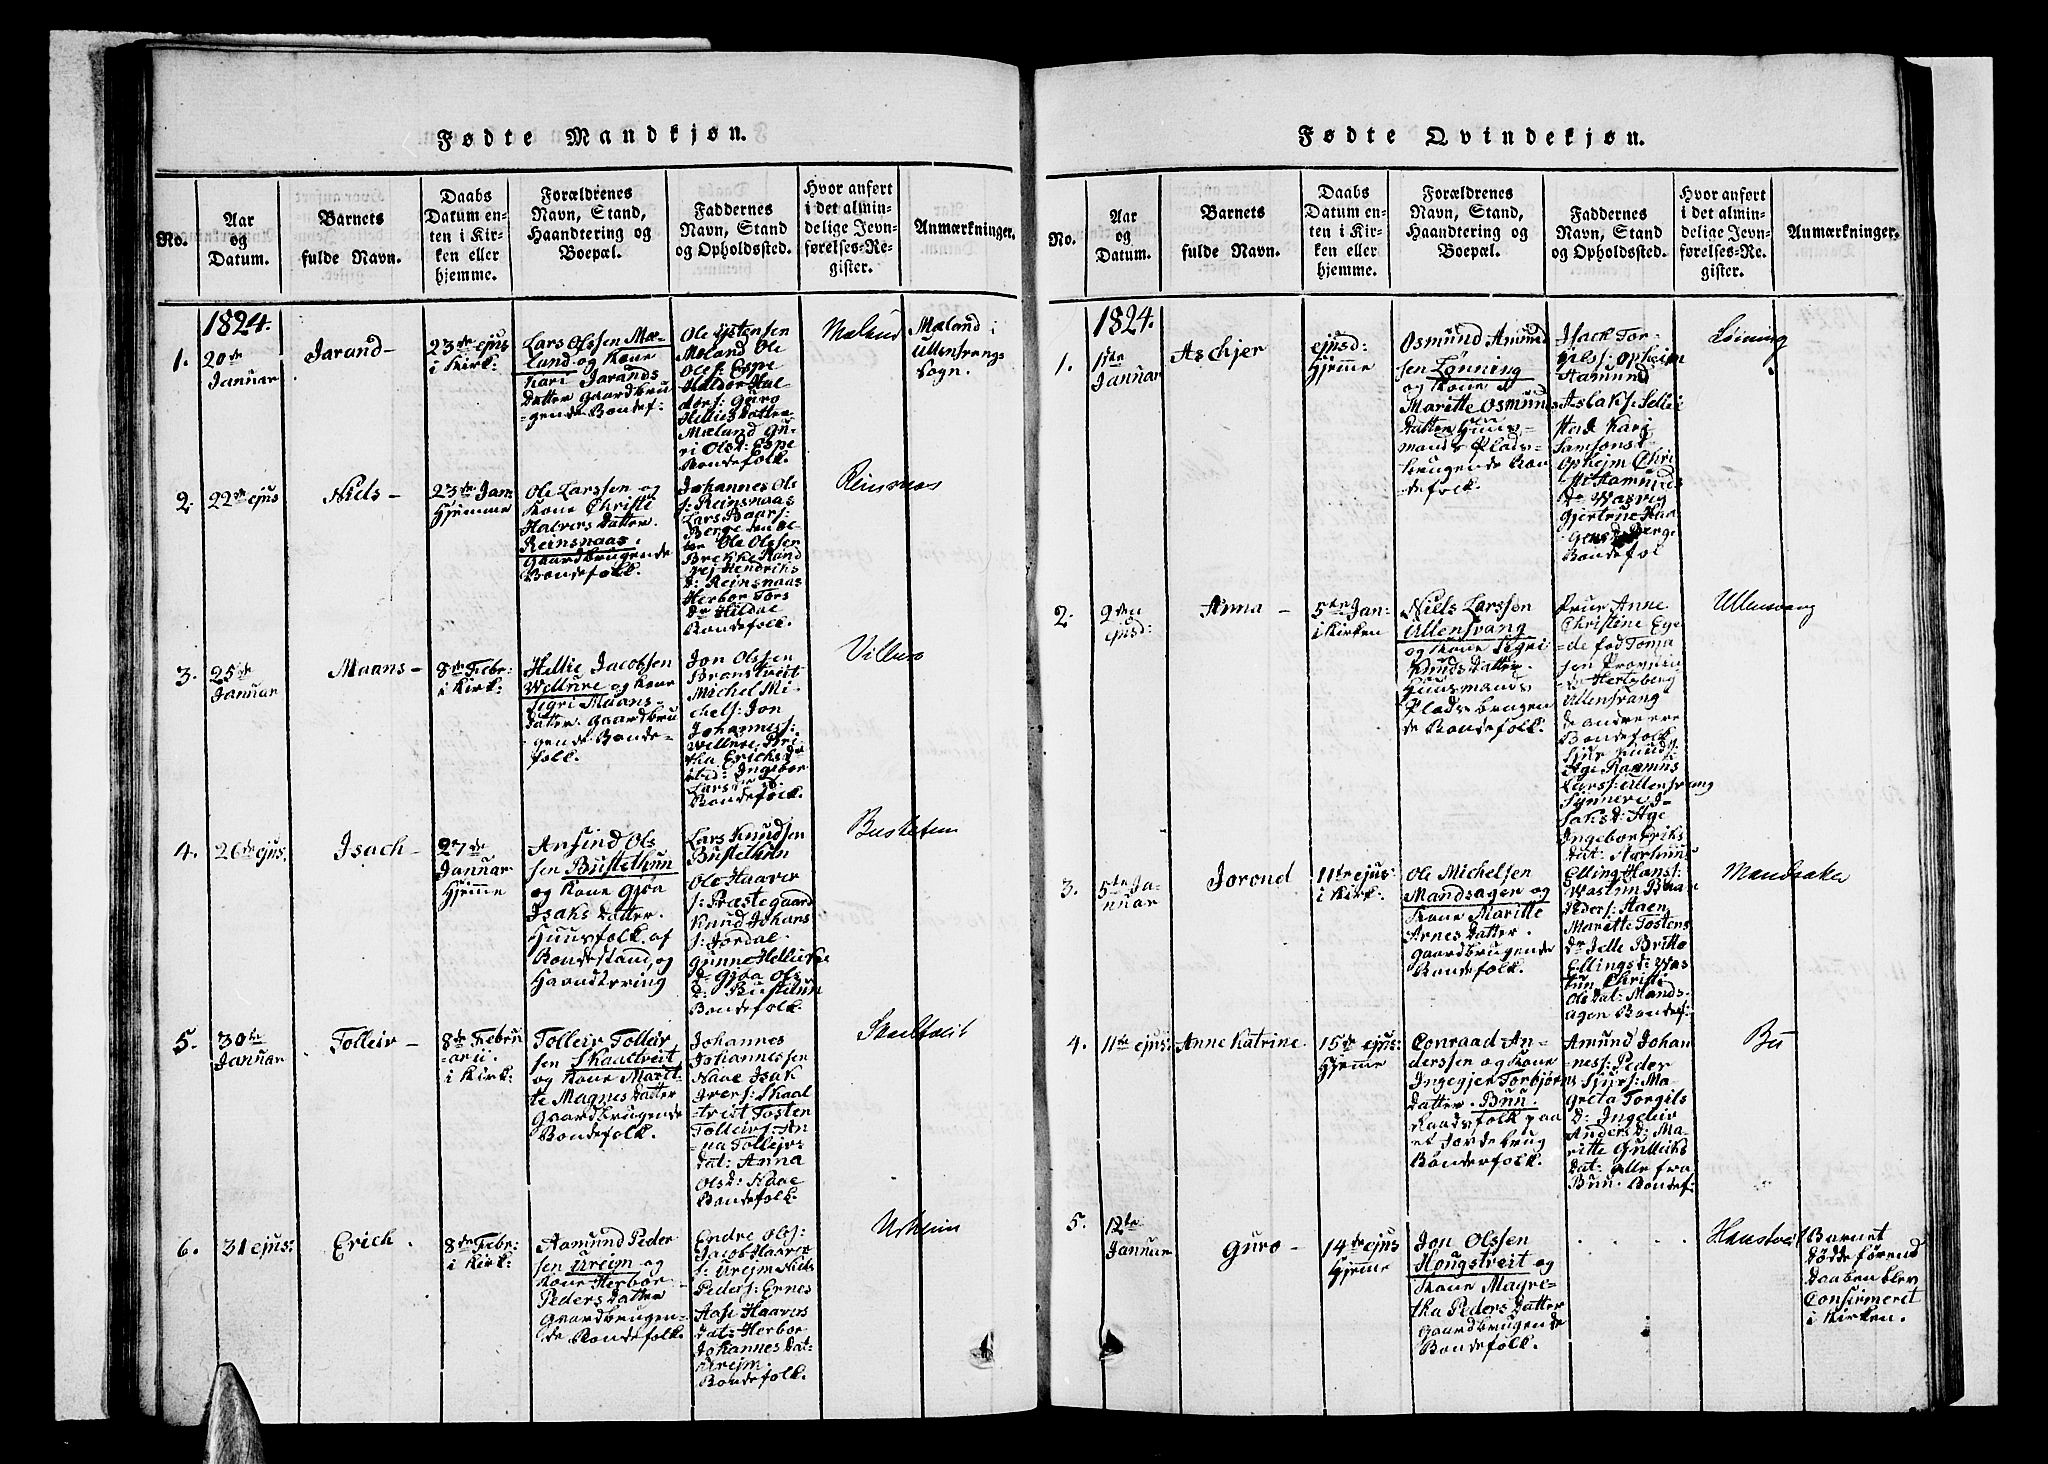 Fødte Mandkjøn.
No.
Aar
og
Datum.
Barnets
fulde Navn.
Daabs
Datum en-
ten i Kir-
ken eller
hjemme.
Forældrenes
Navn, Stand,
Haandtering og
Boepæl.
Faddernes
Navn, Stand
og Opholdssted.
Hvor anført
i det almin-
delige Jevn-
førelses-Re-
gister.
Anmærkninger.
1824.
1.
20de
Januar
Jarand
23de ejus
i Kirk:
Lars Olssen Mæ-
land og Kone
Kari Jarands
Datter gaardbru
gende Bondef:
Ole Ystensen
Mæland Ole
Ols: Espe
Haldor Hal
dors: Guro
Hellies Datter
Mæland Gu-
ri Olsd: Espe
Bondefolk.
Mæland
Mæland i
Ullensvang-
Sogn.
2.
22de ejus
Niels
23de Jan
Hjemme
Ole Larssen og
Kone Christi
Halvers Datter
Reinsnaas.
Gaardbrugende
Bondefolk.
Johannes Ole
s: Reinsnaas
Lars Baars:
Berge den æl-
dre Ole Olssen
Brekke Rand
vej Hendriks
d: Reinsnaas
Herbor Tors
Dr Hildal
Bondefolk.
Reinsnaas
3.
25de
Januar
Maans
8de Febr:
i Kirk:
Hellie Jacobsen
Wellure og Kone
Sigri Maans-
Datter. gaardbru
gende Bonde-
folk.
Jon Olssen
Branstveit
Michel Mi-
chels: Jon
Johanness:
Wellure. Bri
tha Erichs dr
ibid: Ingebor
Lars d:
Bondefolk.
4.
26de ejus.
Isach
27de
Januar
Hjemme
Ansind Ols
sen Bustethun
og Kone Gjøa
Isaks Datter.
Huusfolk af
Bondestand, og
Haandterring
Lars Knudsen
Bustethun
Ole Haaver
s: Præstegaard
Knud Johans
s: Jordal.
Gunne Hellieske
Dr Gjøa Ols
d: Bustethun
Bondefolk.
Bustetun
5.
30te
Januar
Tolleiv
8de Febru
arii.
i Kirk:
Tolleiv Tolleiv
sen Skaaltveit
og Kone Marit-
te Magnes Datter
Gaardbrugende
Bondefolk.
Johannes
Johannessen
Naae Isak
Ivers: Skaal
tveit Tosten
Tolleivs: An
na Tolleivs-
dat: Anna
Olsd: Naae
Bondefolk.
6.
31 ejus:
Erich.
8de Febr:
i Kirk:
Aamund Peder
sen Ureim og
Kone Herbor
Peders Datter
Gaardbrugen-
de Bondefolk.
Endre Ols:
Jacob Haaver
s: Ureim Niels
Peders: Ernes
Aase Haavers
Dat: Herbor
Johannes Dat:
Ureim.
Bondefolk.
Urheim
Fødte Qvindekjøn.
No.
Aar
og
Datum.
Barnets
fulde Navn.
Daabs
Datum en-
ten i Kir-
ken eller
hjemme.
Forældrenes
Navn, Stand,
Haandtering og
Boepæl.
Faddernes
Navn, Stand
og Opholdssted.
Hvor anført
i det almin-
delige Jevn-
førelses-Re-
gister.
Anmærkninger.
1824.
1.
1ste
Januar
Aschjer
ejusd:
Hjemme
Osmund Amund
sen Lønning
og Kone
Maritte Osmunds
Datter Huus-
mands Plads-
brugende Bon
defolk.
Isack Tor-
gils: Opheim
Aamund
Aslaks: Sellie
stad Kari
Samsonsd
Opheim Chri
sti Aamunds
Dr Wasvig
Gjertrue Haa
gensd Berge
Bondefol
Lønning
2.
2den
ejusd:
Anna
5te Jan-
i Kirken
Niels Larssen
Ullensvang
og Kone Sigri
Knuds Datter.
Huusmands
Pladsbrugen
de Bondefolk.
Frue Anne
Christine Ege
de fød Toma
sen Provstin
de Hertzberg
Ullensvang
de andre ere
Bondefolk
Siur Knuds:
Age Rasmus
Lars: Ullensvang
Synneve I-
saksd: Age
Ingebor Eriks
Dat: Aarhuus
Ullensvang
3.
5te Ja-
nuar
Jorond
11te ejus:
i Kirk:
Ole Michelsen
Mandsagen og
Kone Maritte
Arnes Datter.
Gaardbrugende
Bondefolk.
Elling Hans:
Wastun Baar
Peders: Staen
Maritte Tostens
Dr Jelle Britto
Ellings d: Was
tun Christi
Ols Dat: Mands-
agen Bondef:
Mandsaker
4.
11te ejus:
Anne Katrine
15de ejus:
Hjemme
Conraad An-
derssen og Kone
Ingegjer Torbjørns
Datter. Buu.
Raadsfolk paa
et Jordebrug
Bønderfolk.
Amund Johan
nes: Peder
Sjurs: Ma-
greta Torgils
D: Ingeleiv
Anders d: Ma-
ritte Gulleiks
Dat: alle fra
Buu. Bondef:
Bu
5.
12te
Januar
Guro
14de ejus
Hjemme
Jon Olssen
Hougstveit og
Kone Magre-
tha Peders Datter
Gaardbrugende
Bondefolk.
Barnet
døde førend
Daaben blev
Confirmeret
i Kirken.